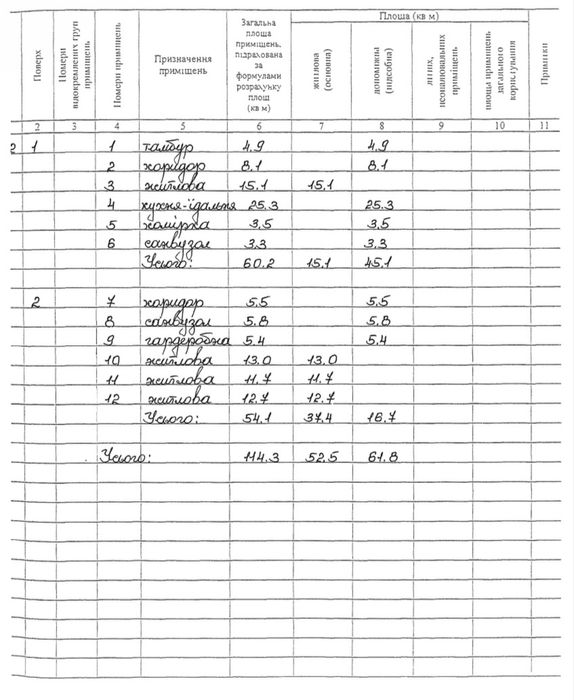 Поверх
Номери відокремлених груп приміщень
Номери приміщень
Призначення приміщень
Загальна площа приміщень, підрахована за формулами розрахунку площ (кв м)
Площа (кв м)
житлова (основна)
допоміжна (підсобна)
площа приміщень загального користування
Примітки
2 3 4 5 6 7 8 9 10 11
2 1 1 тамбур 4.9 4.9
2 коридор 8.1 8.1
3 житлова 15.1 15.1
4 кухня-їдальня 25.3 25.3
5 комірка 3.5 3.5
6 санвузол 3.3 3.3
Усього: 60.2 15.1 45.1
2 7 коридор 5.5 5.5
8 санвузол 5.8 5.8
9 гардеробна 5.4 5.4
10 житлова 13.0 13.0
11 житлова 11.7 11.7
12 житлова 12.7 12.7
Усього: 54.1 37.4 16.7
Усього: 114.3 52.5 61.8